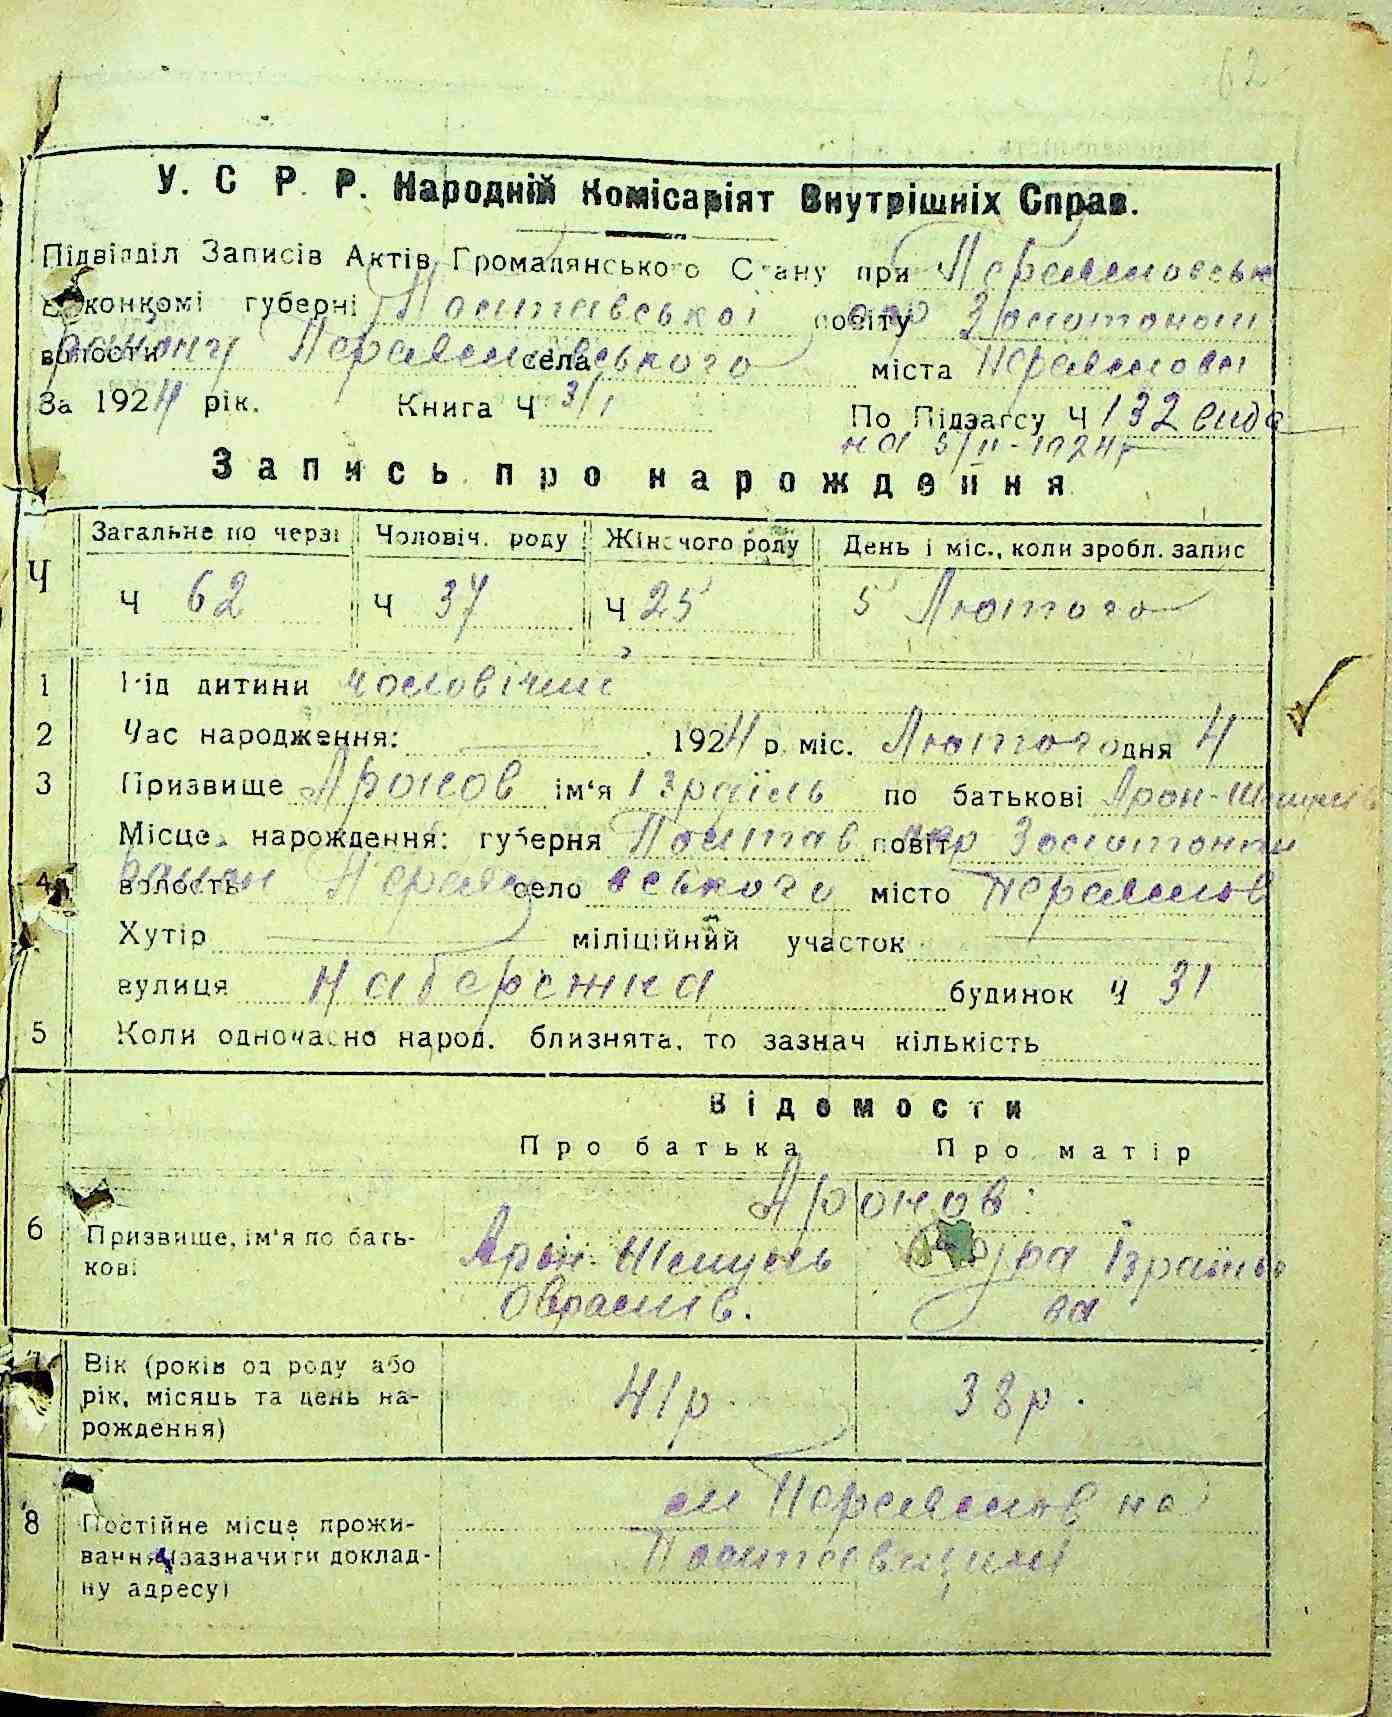 62
У. С Р. Р. Народній Комісаріят Внутрішніх Справ.
Підвідділ Записів Актів Громадянського Стану при Переяловськ
Виконкомі губерні Полтавської повіту окр Золотонош
волости району Переяславського села міста Переяслова
За 1924 рік. Книга Ч 3/1 По Підзагсу Ч 132 вида
на 5/II-1924р
Запись про нарождення
Ч Загальне по черзі Чоловіч. роду Жіночого роду День і міс., коли зробл. запис
Ч 62 Ч 37 Ч 25 5 Лютого
1 Рід дитини чоловічий
2 Час народження: 1924 р. міс. Лютого дня 4
3 Призвище Аронов ім'я Ізраїль по батькові Арон-Шмулів
Місце нарождення: губерня Полтав повіт окр Золотонош
4 волость район Переяславського село місто Переяслов
Хутір міліційний участок
вулиця Набережна будинок Ч 31
5 Коли одночасно народ. близнята, то зазнач кількість
Відомости
Про батька Про матір
Аронов:
6 Призвище, ім'я по бать-
кові
Арон-Шмуль Ізраїльов
Овраамів. на
7 Вік (років од роду або
рік, місяць та день на-
рождення)
41р 38р.
м Переяслов на
8 Постійне місце прожи-
вання (зазначити доклад-
ну адресу)
Полтавщині